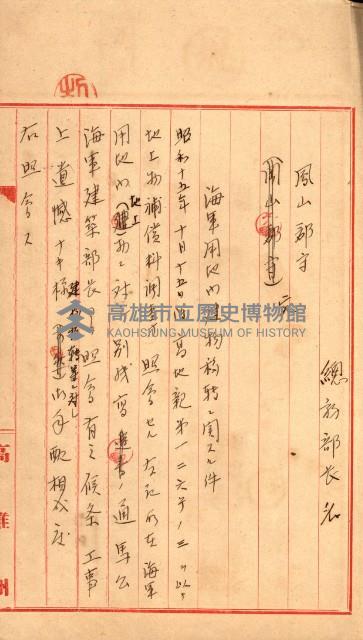 總務部長名
鳳山郡守
岡山郡守 宛
海軍用地內建物移轉ニ関スル件
昭和十五年十月十五日高地親第一二六号ノ三ヲ以テ
地上物補償料調査 照會セル 左記所在海軍
用地內地上物ニ対シ別紙寫ノ通馬公
海軍建築部長 照會有之候条工事
上遺憾ナキ様建物移轉ニ対シ御手配相成度
右照會ス
高雄州
高雄市立歷史博物館
KAOHSIUNG MUSEUM OF HISTORY